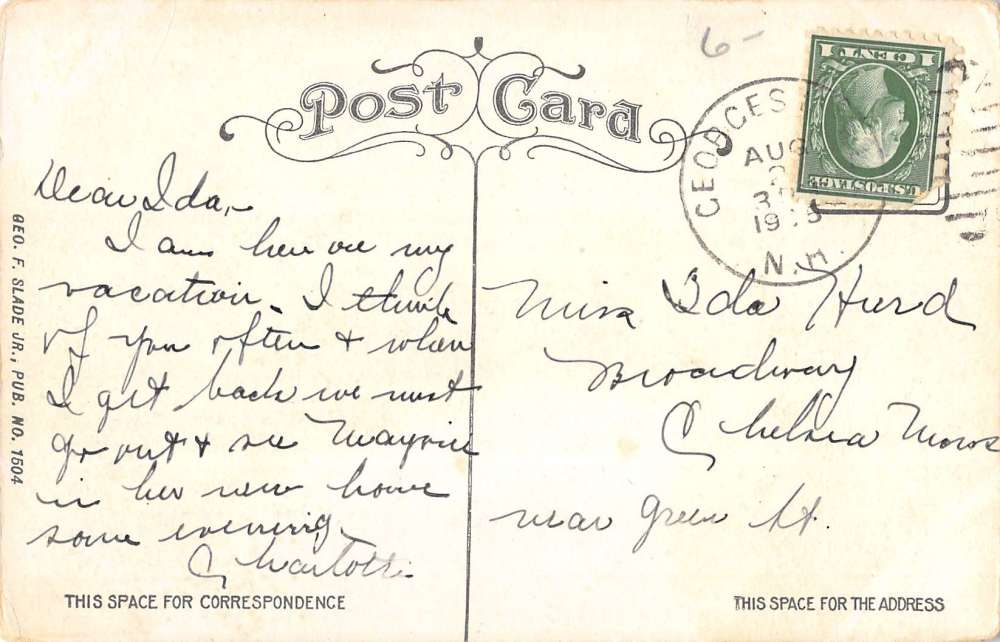 6-
Post Card
1 CENT 1
U.S. POSTAGE
AUG
N.H.
Dear Ida,-
I am here on my
vacation. I think
of you often & when
I get back we must
go out & see
in her new home
some evening.
Charlotte.
GEO. F. SLADE JR., PUB. NO. 1504
Miss Ida Hurd
Broadway
Chelsea Mass
near Green St.
THIS SPACE FOR CORRESPONDENCE
THIS SPACE FOR THE ADDRESS